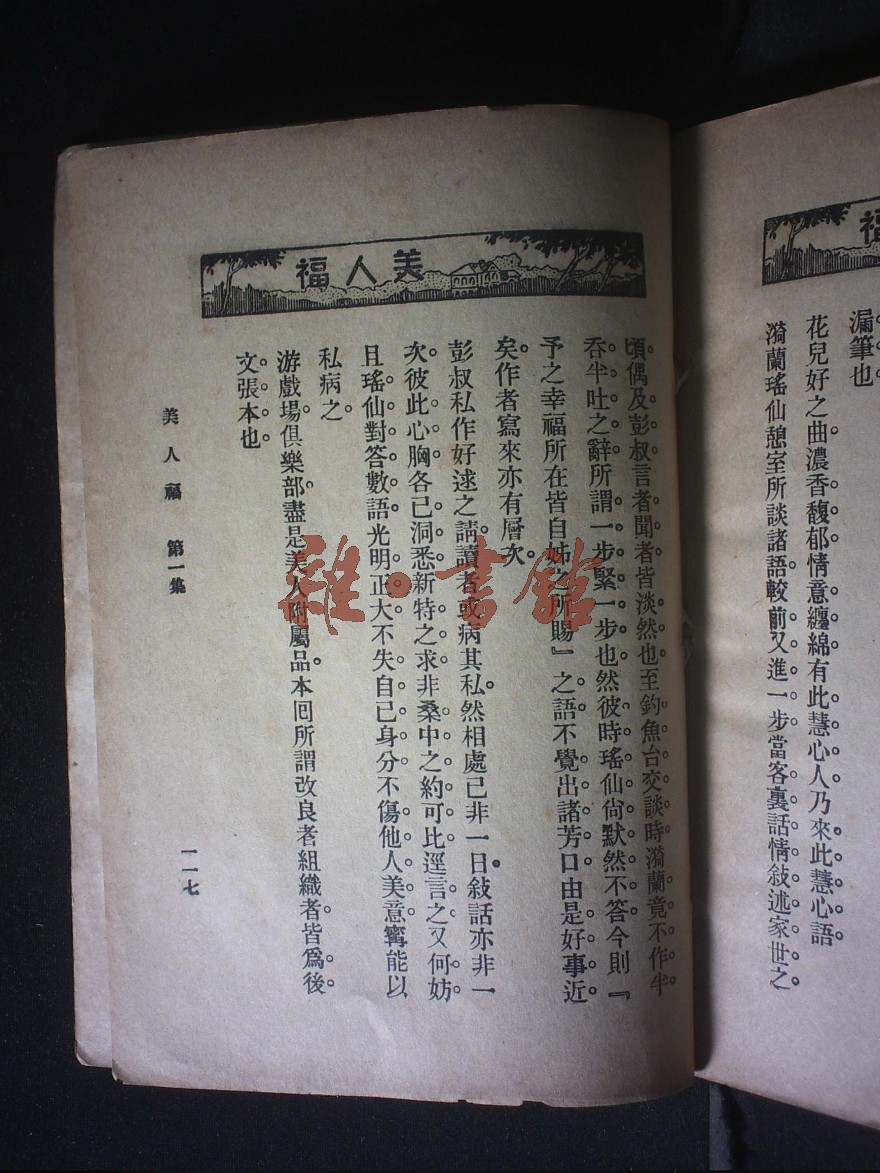 福
漏筆也
花兒好之曲濃香馥郁情意纏綿有此慧心人乃來此慧心語
漪蘭瑤仙憩室所談諸語較前又進一步當客裏話情敍述家世之
美人福
頃偶及彭叔言者聞者皆淡然也至釣魚台交談時漪蘭竟不作半
吞半吐之辭所謂一步緊一步也然彼時瑤仙尙默然不答今則『
予之幸福所在皆自姊之所賜』之語不覺出諸芳口由是好事近
矣作者寫來亦有層次
彭叔私作好逑之請讀者或病其私然相處已非一日敍話亦非一
次彼此心胸各已洞悉新特之求非桑中之約可比逕言之又何妨
且瑤仙對答數語光明正大不失自己身分不傷他人美意寗能以
私病之
游戲場俱樂部盡是美人附屬品本回所謂改良者組織者皆爲後
文張本也
美人福 第一集
一一七
雜·書館